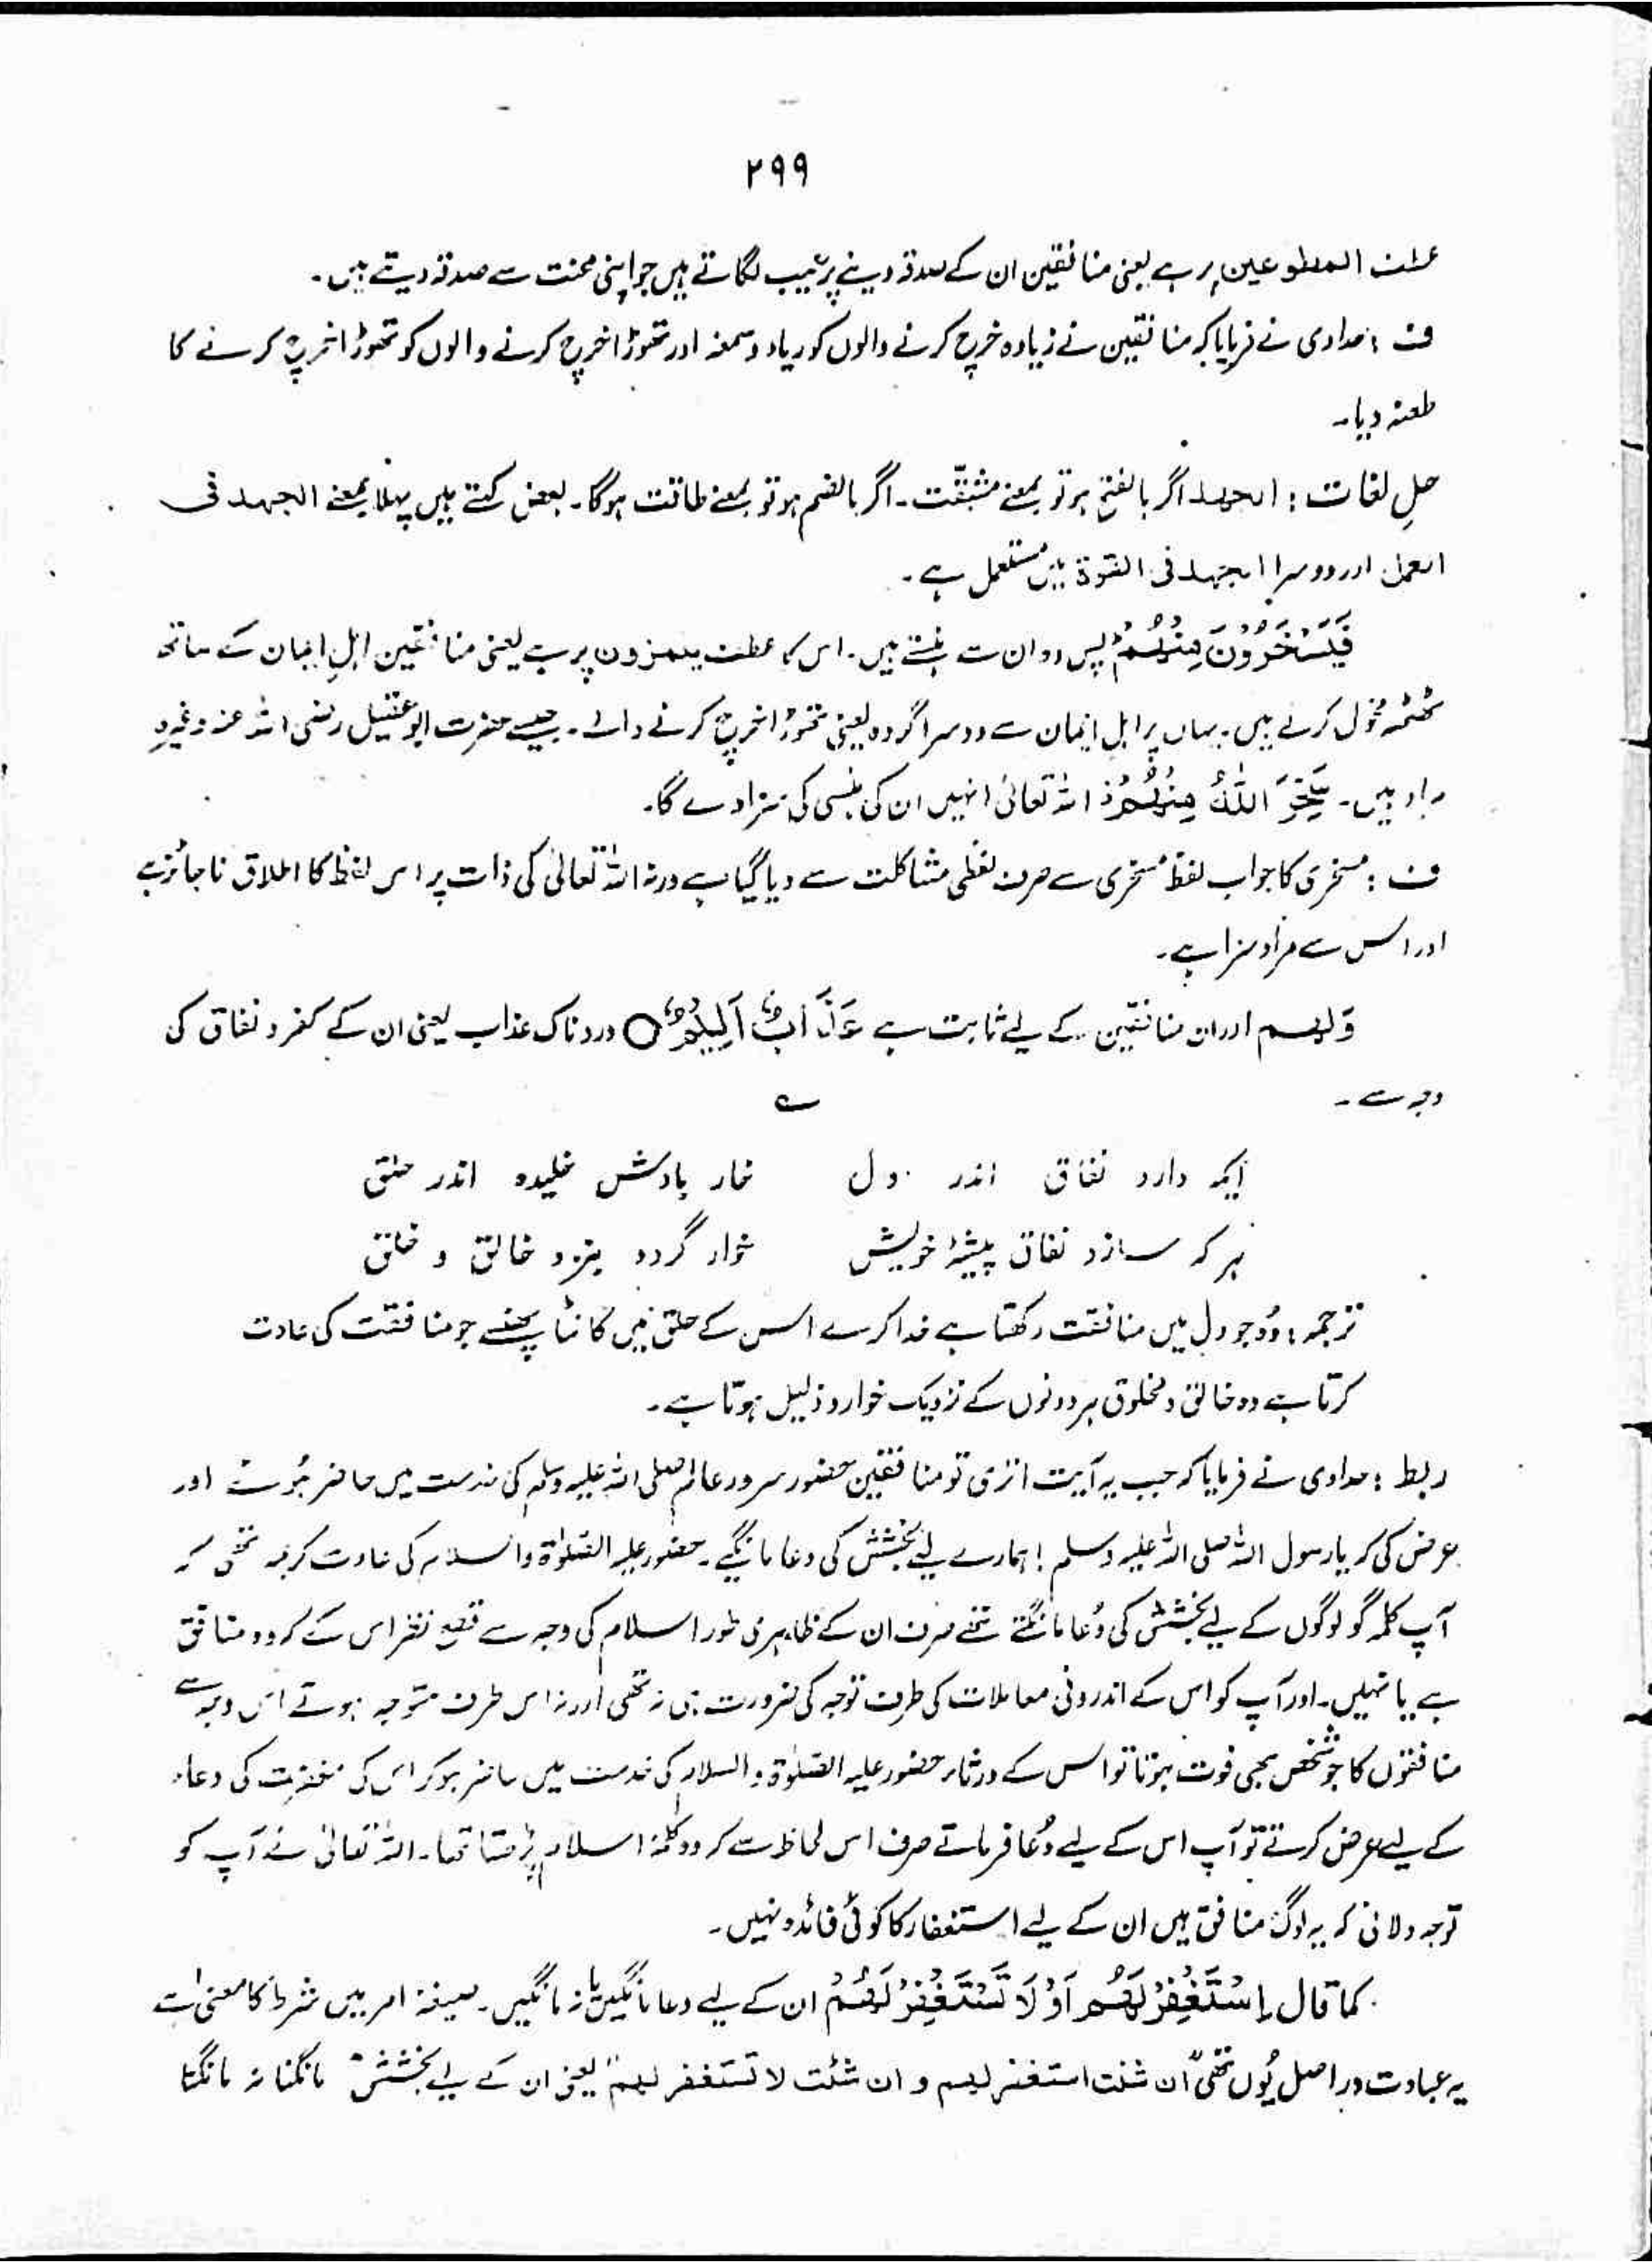 ۲۹۹
عطف المطوعین پر ہے یعنی منافقین ان کے صدقہ دینے پر عیب لگاتے ہیں جو اپنی محنت سے صدقہ دیتے ہیں۔
ف : حدادی نے فرمایا کہ منافقین نے زیادہ خرچ کرنے والوں کو ریاء و سمعہ اور تھوڑا خرچ کرنے والوں کو تھوڑا خرچ کرنے کا
طعنہ دیا۔
حلِ لغات : الجھد اگر بالفتح ہو تو بمعنے مشقّت۔ اگر بالضم ہو تو بمعنے طاقت ہوگا۔ بعض کہتے ہیں پہلا بمعنے الجہد فی
العمل اور دوسرا الجہد فی القوۃ میں مستعمل ہے۔
فَیَسْخَرُوْنَ مِنْهُمْ پس وہ ان سے ہنستے ہیں۔ اس کا عطف یلمزون پر ہے یعنی منافقین اہلِ ایمان کے ساتھ
ٹھٹھہ مخول کرتے ہیں۔ یہاں پر اہل ایمان سے دوسرا گروہ یعنی تھوڑا خرچ کرنے والے۔ جیسے حضرت ابو عقیل رضی اللہ عنہ وغیرہ
مراد ہیں۔ سَخِرَ اللّٰهُ مِنْهُمْ ز اللہ تعالیٰ انہیں ان کی ہنسی کی سزا دے گا۔
ف : مسخری کا جواب لفظ مسخری سے صرف لفظی مشاکلت سے دیا گیا ہے ورنہ اللہ تعالیٰ کی ذات پر اس لفظ کا اطلاق ناجائز ہے
اور اس سے مراد سزا ہے۔
وَلهم اور ان منافقین کے لیے ثابت ہے عَذَابٌ اَلِیْمٌ ○ دردناک عذاب یعنی ان کے کفر و نفاق کی
وجہ سے۔ ؎
آنکہ دارد نفاق اندر دل خار بادش خلیدہ اندر حلق
ہر کہ سازد نفاق پیشۂ خویش خوار گردد بنزد خالق و خلق
ترجمہ : وُہ جو دل میں منافقت رکھتا ہے خدا کرے اس کے حلق میں کانٹا چبھے جو منافقت کی عادت
کرتا ہے وہ خالق و مخلوق ہر دونوں کے نزدیک خوار و ذلیل ہوتا ہے۔
ربط : حدادی نے فرمایا کہ جب یہ آیت اتری تو منافقین حضور سرور عالم صلی اللہ علیہ وسلم کی خدمت میں حاضر ہُوئے اور
عرض کی کہ یا رسول اللہ صلی اللہ علیہ وسلم ! ہمارے لیے بخشش کی دعا مانگیے۔ حضور علیہ الصّلوٰۃ والسلام کی عادت کریمہ تھی کہ
آپ کلمہ گو لوگوں کے لیے بخشش کی دُعا مانگتے تھے صرف ان کے ظاہری طور اسلام کی وجہ سے قطع نظر اس کے کہ وہ منافق
ہے یا نہیں۔ اور آپ کو اس کے اندرونی معاملات کی طرف توجہ کی ضرورت ہی نہ تھی اور نہ اس طرف متوجہ ہوتے اس وجہ سے
منافقوں کا جو شخص بھی فوت ہوتا تو اس کے ورثاء حضور علیہ الصّلوٰۃ والسلام کی خدمت میں حاضر ہو کر اس کی مغفرت کی دعاء
کے لیے عرض کرتے تو آپ اس کے لیے دُعا فرماتے صرف اس لحاظ سے کہ وہ کلمۂ اسلام پڑھتا تھا۔ اللہ تعالیٰ نے آپ کو
توجہ دلائی کہ یہ لوگ منافق ہیں ان کے لیے استغفار کا کوئی فائدہ نہیں۔
کما قال اِسْتَغْفِرْ لَهُمْ اَوْ لَا تَسْتَغْفِرْ لَهُمْ ان کے لیے دعا مانگیں یا نہ مانگیں۔ صیغۂ امر میں شرط کا معنی ہے
یہ عبادت دراصل یُوں تھی "ان شئت استغفر لہم و ان شئت لا تستغفر لہم" یعنی ان کے لیے بخشش مانگنا نہ مانگنا